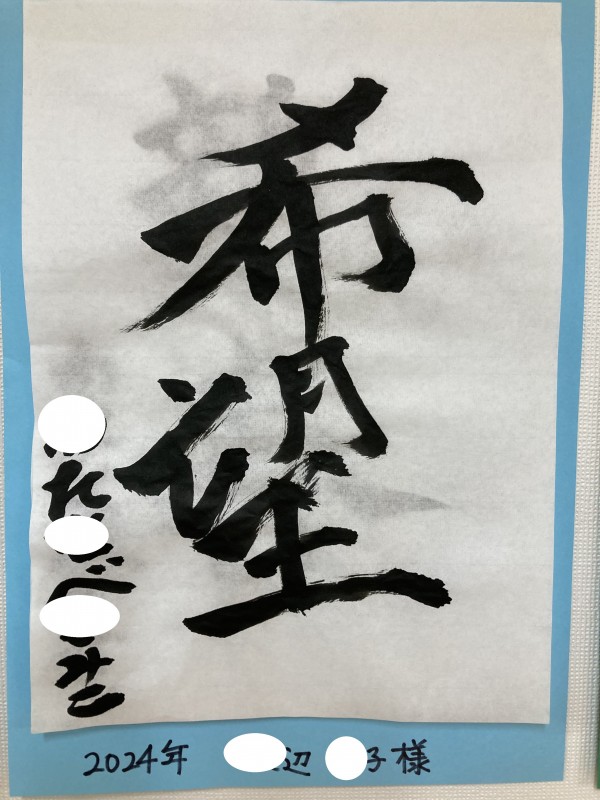 希望
た べ み
2024年 辺 子様